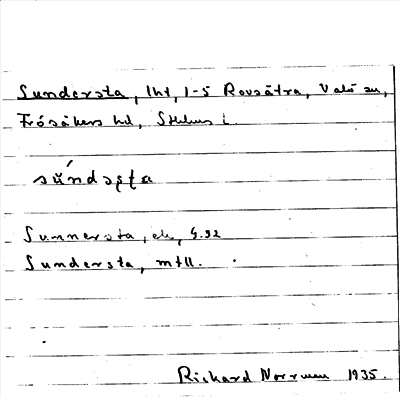 Sundersta, lht, 1-5 Rovsätra, Valö sn,
Frösåkers hd, Sthlms l.
sùndaʂʈa
Sunnersta, ek, G.92
Sundersta, mtll.
Richard Norrman 1935.